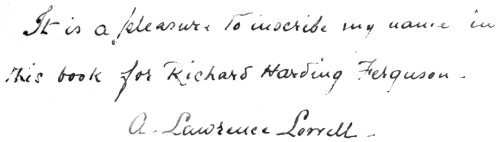 It is a pleasure to inscribe my name in
this book for Richard Harding Ferguson.
A. Lawrence Lowell.